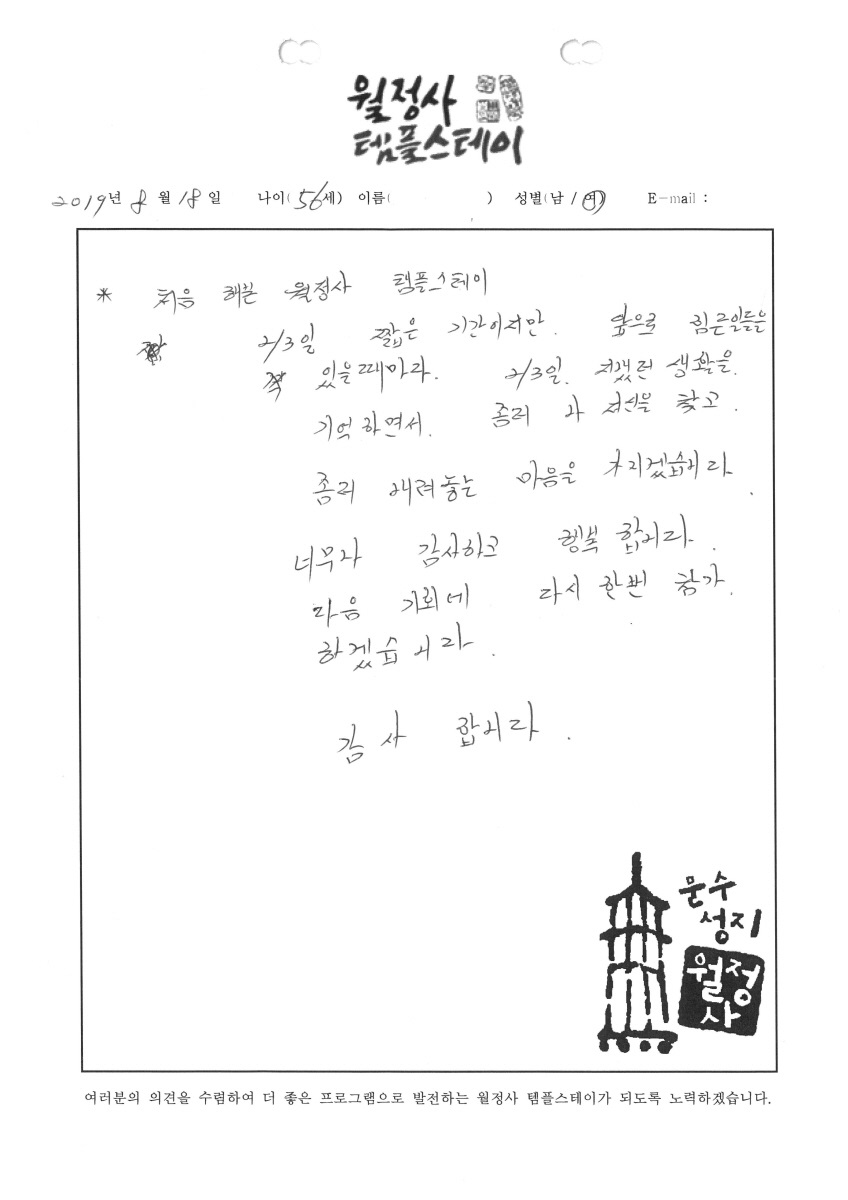 월정사
템플스테이
2019년 8월 18일 나이(56세) 이름( ) 성별(남/여) E-mail :
* 처음 해본 월정사 템플스테이
2/3일 짧은 기간이지만. 앞으로 힘든일들을
있을때마라. 2/3일. 지냈던 생활을.
기억하면서. 좀더 나 자신을 찾고.
좀더 내려놓는 마음을 가지겠습니다.
너무나 감사하고 행복 합니다.
다음 기회에 다시 한번 참가.
하겠습니다.
감사 합니다.
문수
성지
월정
사
여러분의 의견을 수렴하여 더 좋은 프로그램으로 발전하는 월정사 템플스테이가 되도록 노력하겠습니다.